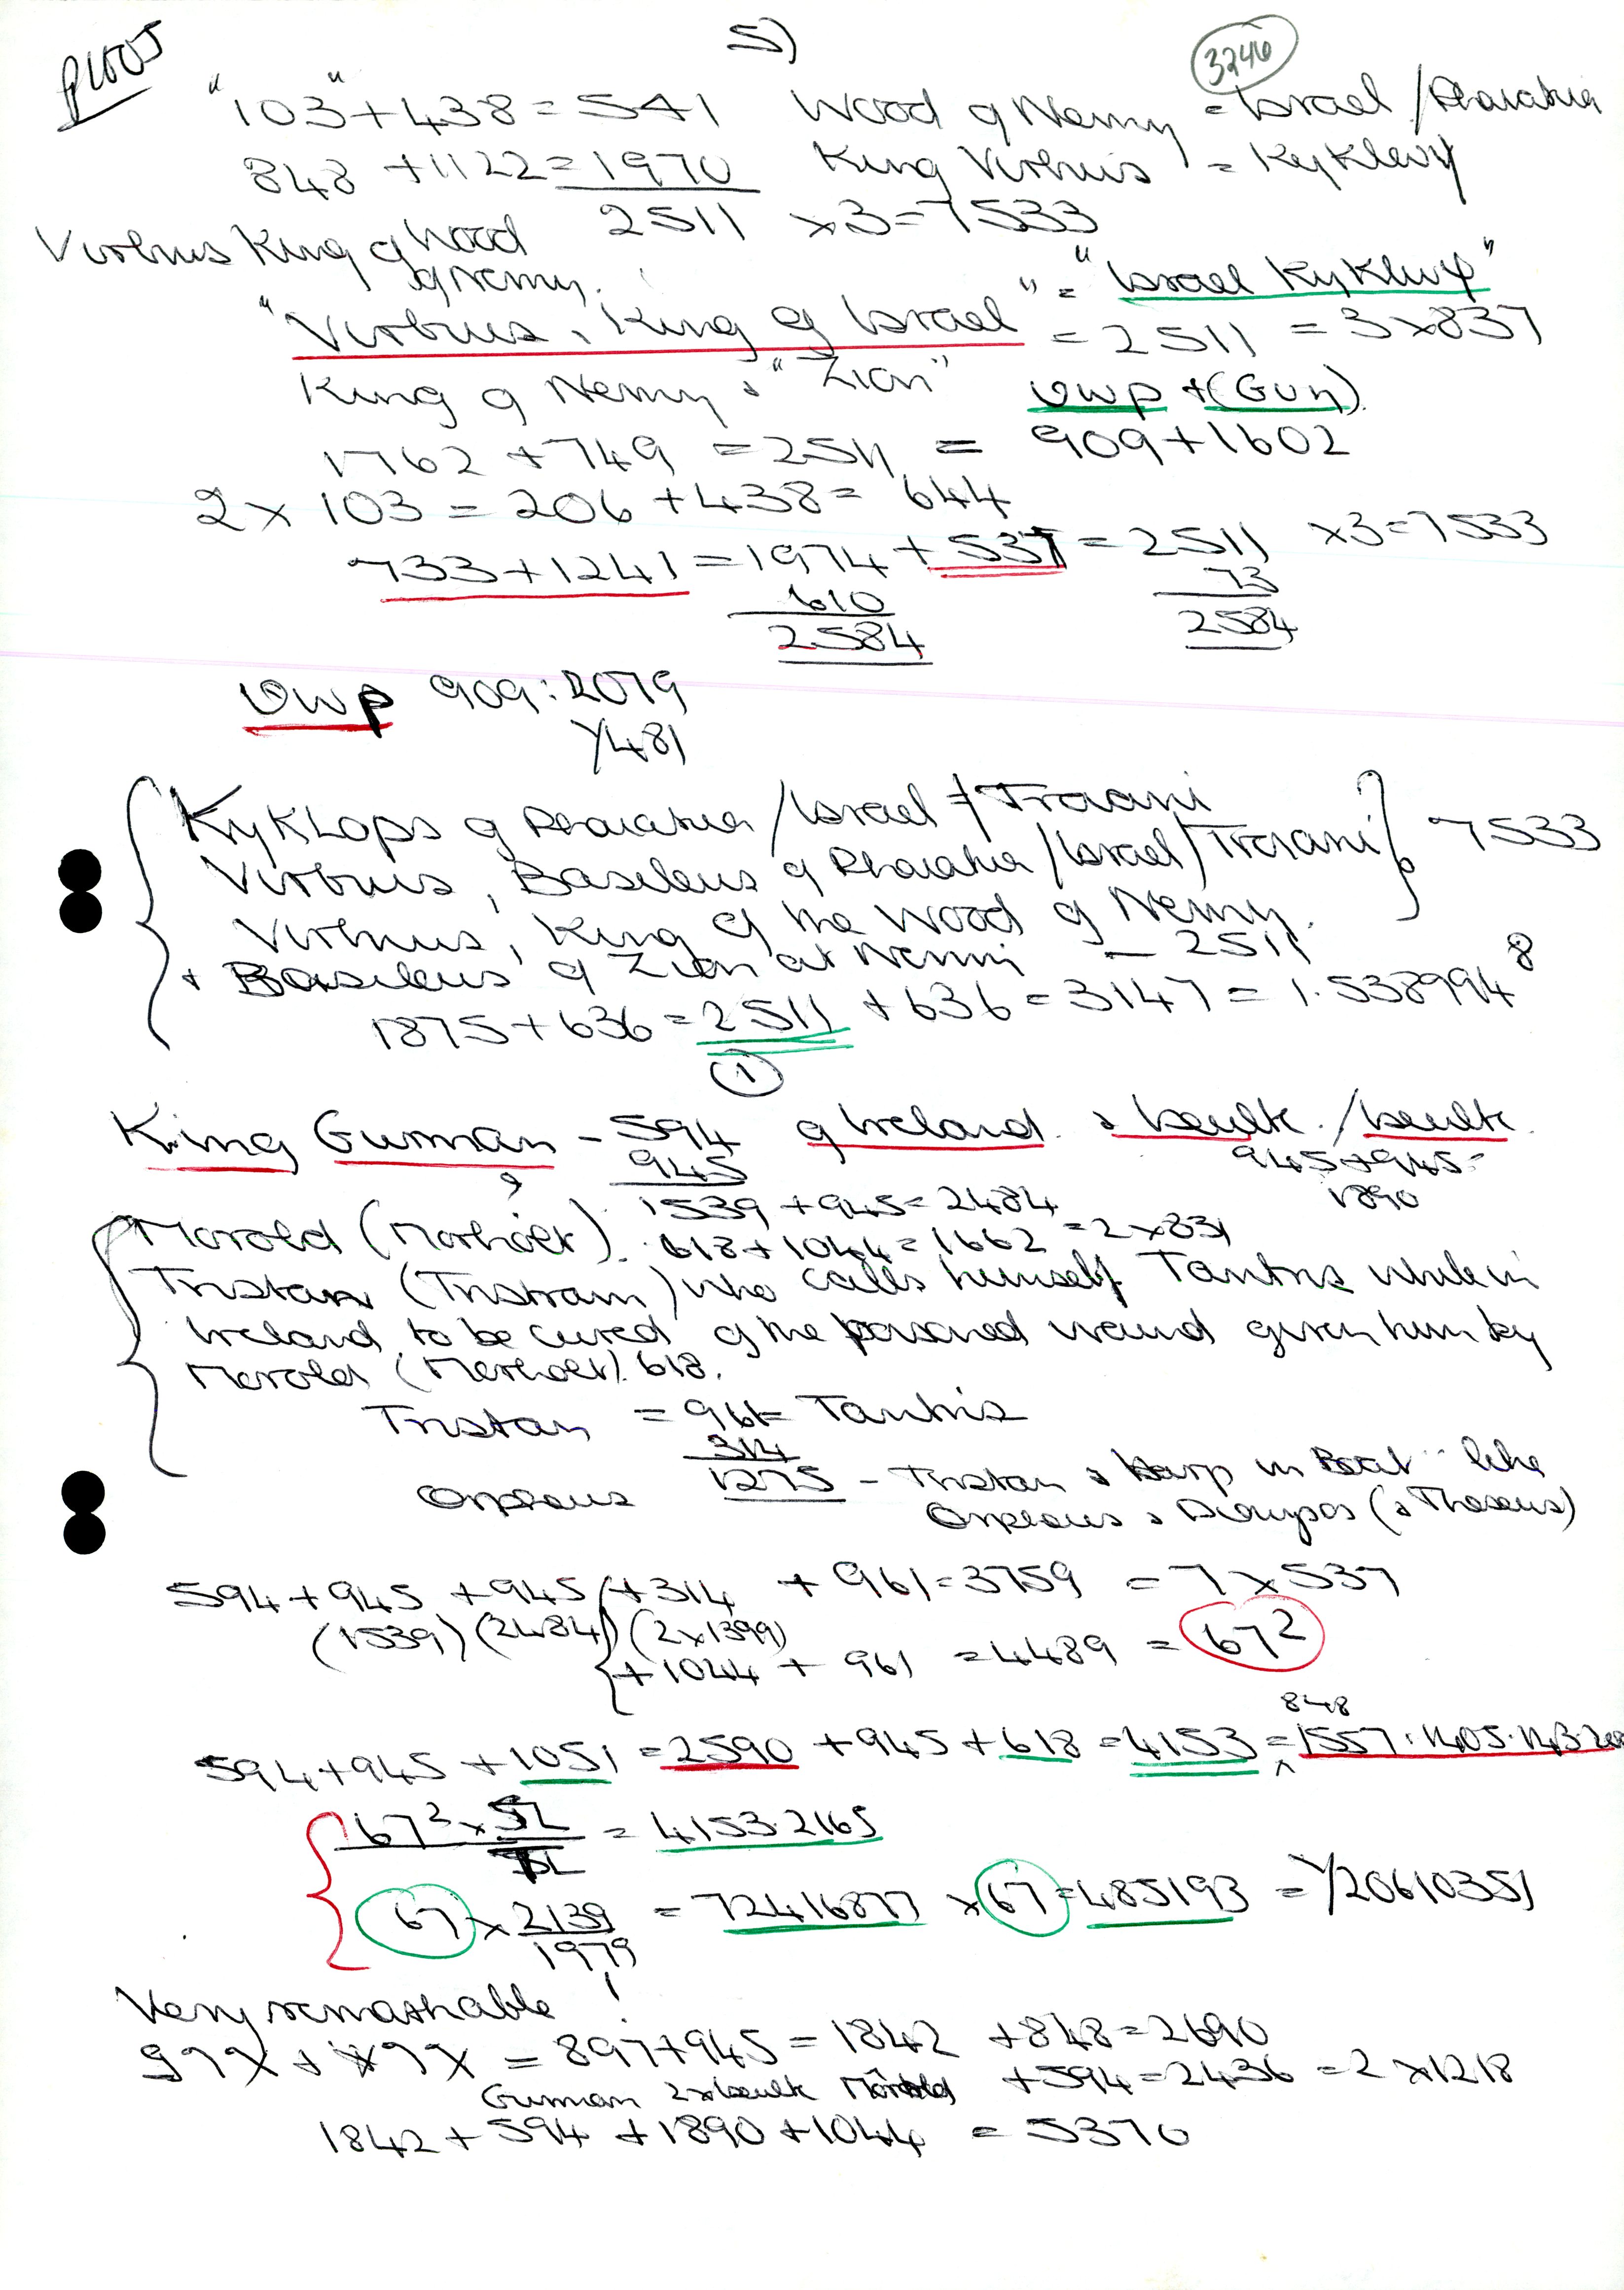 5)
3246
"103" + 438 = 541 Wood of Nemy = Israel / Phaiakia
848 + 1122 = 1970 King Virbius =
2511 × 3 = 7533
Virbius King of Wood
of Nemy.
"Virbius, King of Israel" = "Israel
= 2511 = 3 × 837
King of Nemy "Zion"
+ (Gun)
1762 + 749 = 2511 = 909 + 1602
2 × 103 = 206 + 438 = 644
733 + 1241 = 1974 + 537 = 2511 × 3 = 7533
610 73
2584 2584
909 : 2079
481
KyKlops of Phaiakia / Israel / Troiani
Virbius, Basileus of Phaiakia / Israel / Troiani } 7533
Virbius, King of the Wood of Nemy.
+ Basileus of Zion at Nemi — 2511
1875 + 636 = 2511 + 636 = 3147 = 1.538994 8
1
King Gurman - 594 of Ireland. Iseult. / Iseult.
945 945 + 945 =
1890
1539 + 945 = 2484
Morold (Morholt). 618 + 1044 = 1662 = 2 × 831
Tristan (Tristram) who calls himself Tantris while in
Ireland to be cured of the poisoned wound given him by
Morold (Morholt). 618.
Tristan = 961 = Tantris
314
Orpheus 1275 - Tristan & Harp in Boat like
Orpheus & Dionysos (& Theseus)
594 + 945 + 945 + 314 + 961 = 3759 = 7 × 537
(1539) (2484) (2×1399)
+ 1044 + 961 = 4489 = 67²
848
594 + 945 + 1051 = 2590 + 945 + 618 = 4153 = 1557
67² × = 4153.2165
67 × 2139 = 72416877 × 67 = 485193 = 20610351
1979
Very remarkable !
= 897 + 945 = 1842 + 848 = 2690
Gurman 2×Iseult Morold + 594 = 2436 = 2 × 1218
1842 + 594 + 1890 + 1044 = 5370